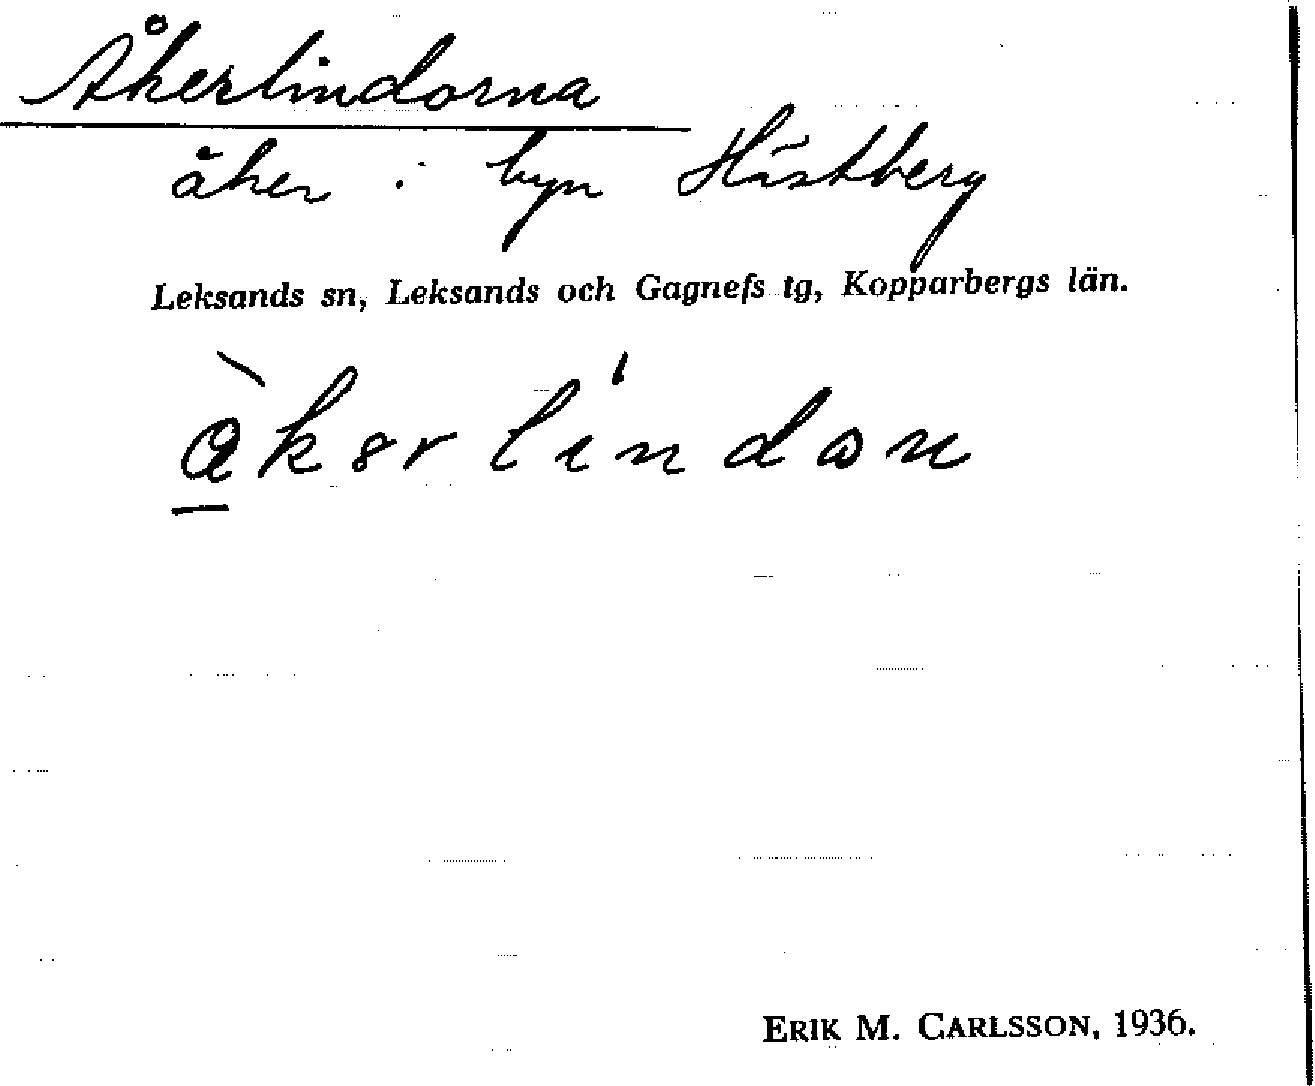 Åkerlindorna
åker i byn Hästberg
Leksands sn, Leksands och Gagnefs tg, Kopparbergs län.
ERIK M. CARLSSON, 1936.